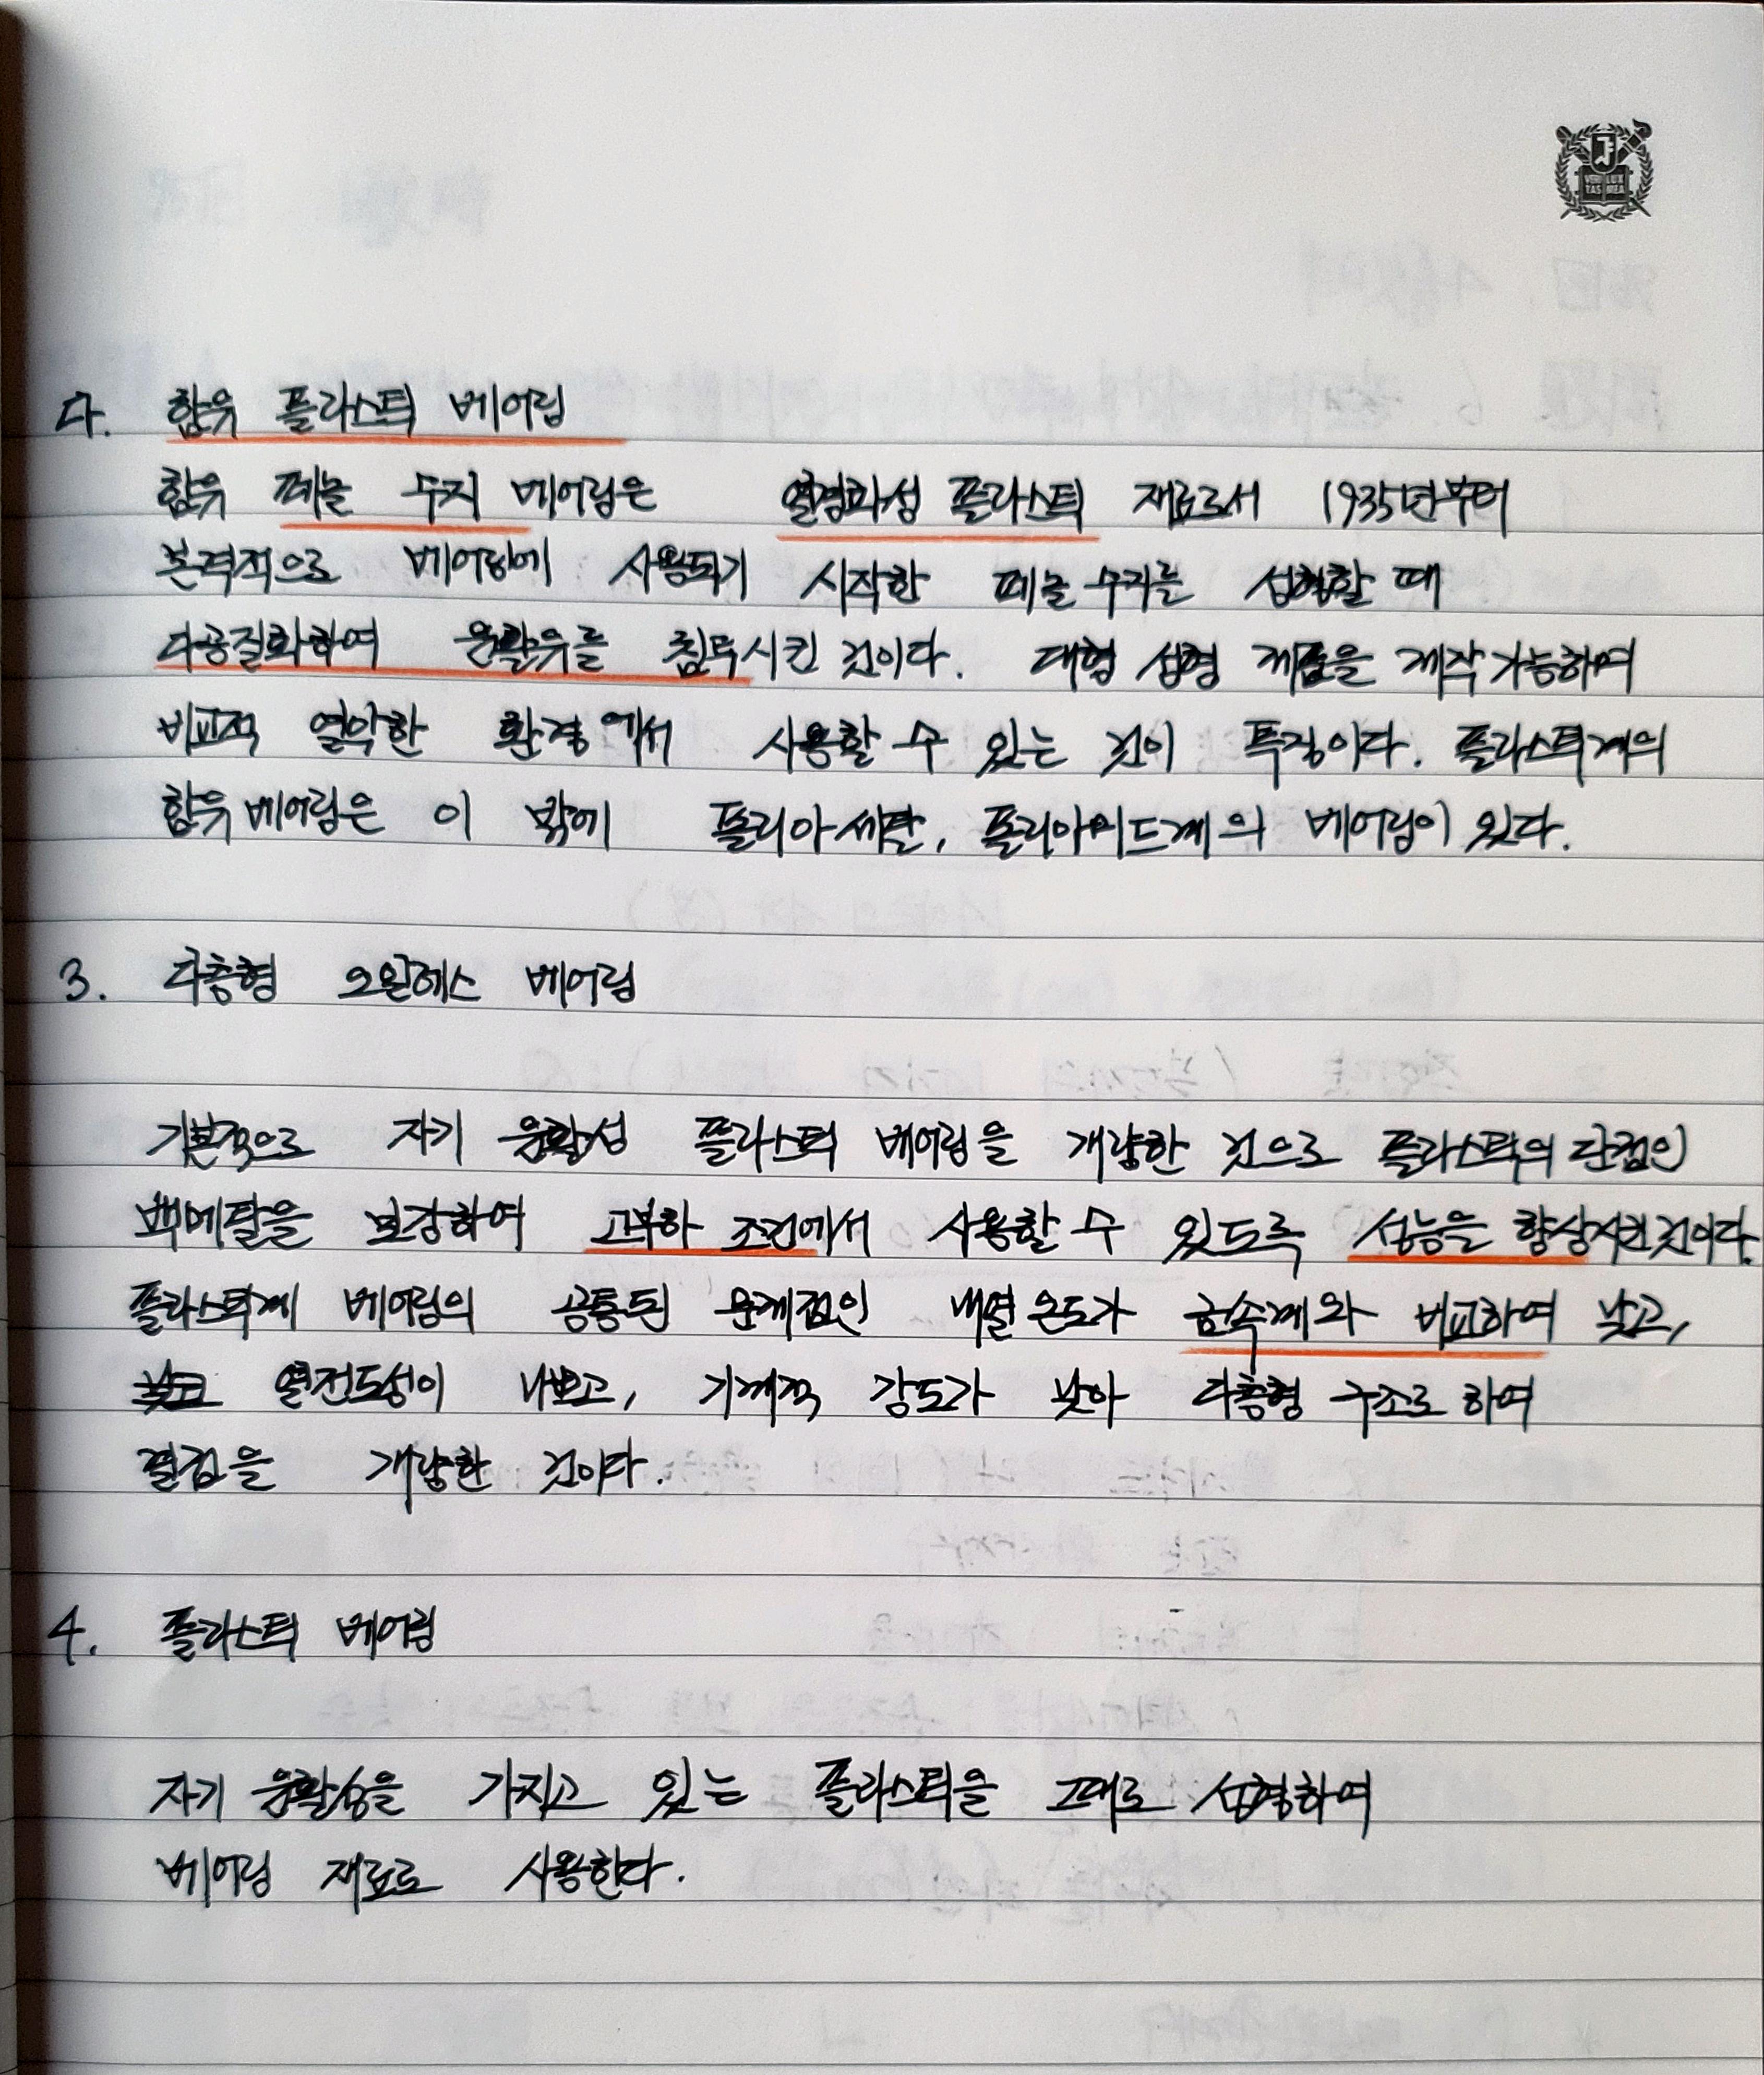 다. 함유 플라스틱 베어링
함유 페놀 수지 베어링은 열경화성 플라스틱 재료로서 1935년부터
본격적으로 베어링에 사용되기 시작한 페놀 수지를 성형할 때
다공질화하여 윤활유를 침투시킨 것이다. 대형 성형 제품을 제작가능하여
비교적 열악한 환경에서 사용할 수 있는 것이 특징이다. 플라스틱계의
함유베어링은 이 밖에 폴리아세탈, 폴리아미드계의 베어링이 있다.
3. 다층형 오일레스 베어링
기본적으로 자기 윤활성 플라스틱 베어링을 개량한 것으로 플라스틱의 단점인
백메탈을 보강하여 고부하 조건에서 사용할 수 있도록 성능을 향상시킨것이다.
플라스틱계 베어링의 공통된 문제점인 내열온도가 금속계와 비교하여 낮고,
낮고 열전도성이 나쁘고, 기계적 강도가 낮아 다층형 구조로 하여
결점을 개량한 것이다.
4. 플라스틱 베어링
자기 윤활성을 가지고 있는 플라스틱을 그대로 성형하여
베어링 재료로 사용한다.
VERI LUX
TAS MEA